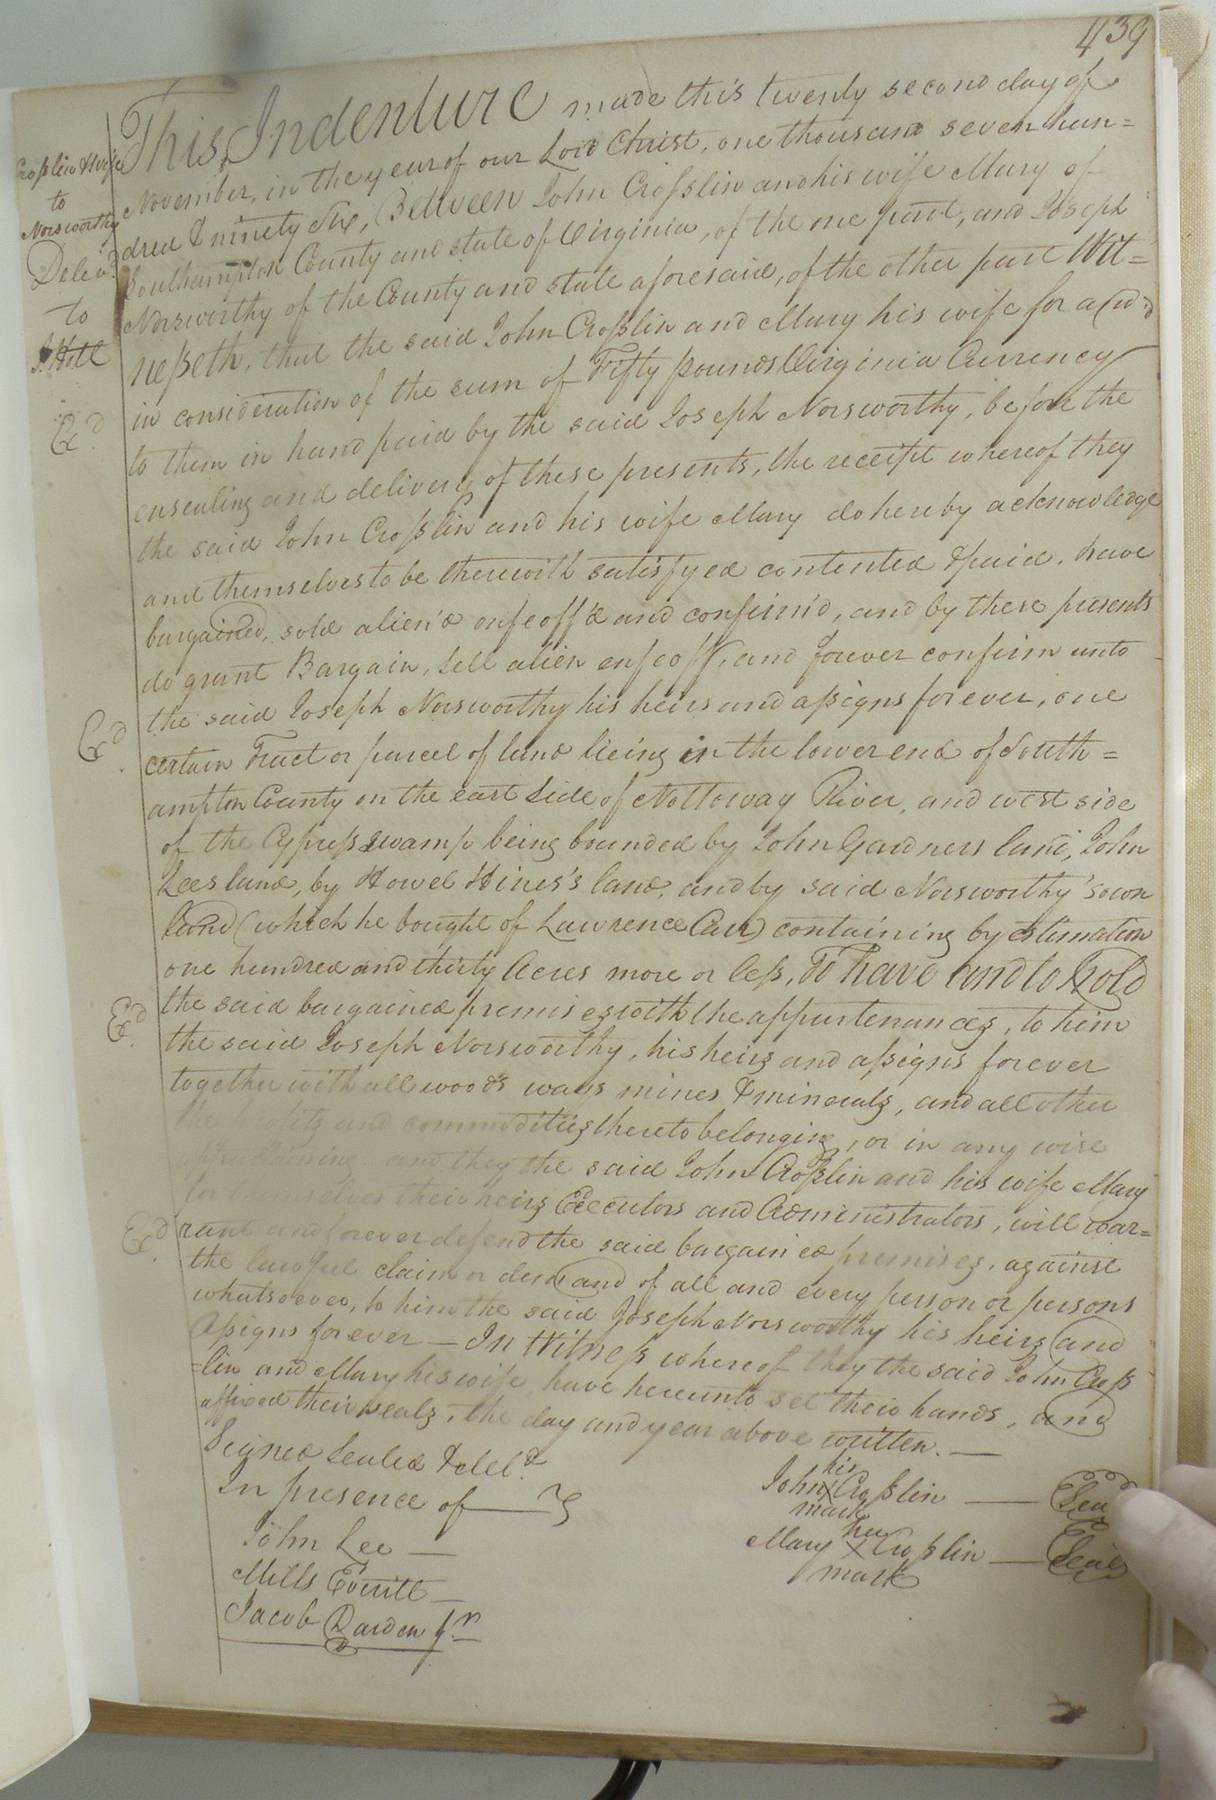 439
Croslin & wife
to
Norsworthy
Deliv.d
to
J. Hill
Ex.d
Ex.d
Ex.d
Ex.d
This Indenture made this twenty second day of
November, in the year of our Lord Christ, one thousand seven hun=
dred & ninety Six, Between John Croslin and his wife Mary of
Southampton County and state of Virginia, of the one part, and Joseph
Norsworthy of the County and state aforesaid, of the other part Wit=
nesseth, that the said John Croslin and Mary his wife for and
in consideration of the sum of Fifty pounds Virginia Currency
to them in hand paid by the said Joseph Norsworthy, before the
ensealing and delivery of these presents, the receipt whereof they
the said John Croslin and his wife Mary do hereby acknowledge
and themselves to be therewith satisfyed contented & paid. have
bargained, sold alien'd enfeoff'd and confirm'd, and by these presents
do grant Bargain, Sell alien enfeoff, and forever confirm unto
the said Joseph Norsworthy his heirs and assigns forever, one
certain Tract or parcel of land lieing in the lower end of South=
ampton County on the east Side of Nottoway River, and west side
of the Cypress swamp being bounded by John Gardners land, John
Lees land, by Howel Hines's land, and by said Norsworthy's own
land (which he bought of Lawrence Carr) containing by estimation
one hundred and thirty Acres more or less, To have and to hold
the said bargained premises with the appurtenances, to him
the said Joseph Norsworthy, his heirs and assigns forever
together with all woods ways mines & minerals, and all other
the profits and commodities thereto belonging, or in any wise
appertaining and they the said John Croslin and his wife Mary
for themselves their heirs Executors and Administrators, will war=
rant and forever defend the said bargained premises, against
the lawful claim or demand of all and every person or persons
whatsoever, to him the said Joseph Norsworthy his heirs and
Assigns forever — In Witness whereof they the said John Cross
=lin and Mary his wife, have hereunto set their hands, and
affixed their seals, the day and year above written. —
Signed Sealed & del.d
In presence of
John Lee —
Mills Everitt —
Jacob Darden Jr
his
John X Croslin — Seal
mark
her
Mary X Croslin — Seal
mark